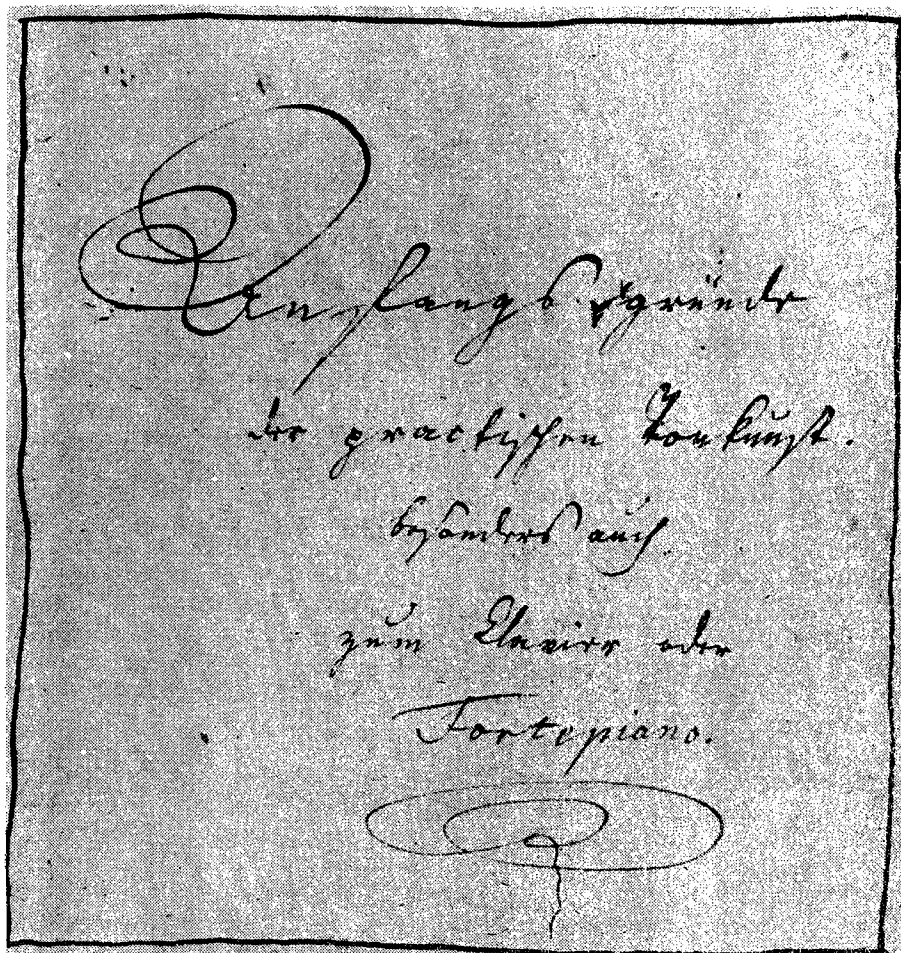 Anfangsgründe
der practischen Tonkunst.
besonders auch
zum Clavier oder
Fortepiano.